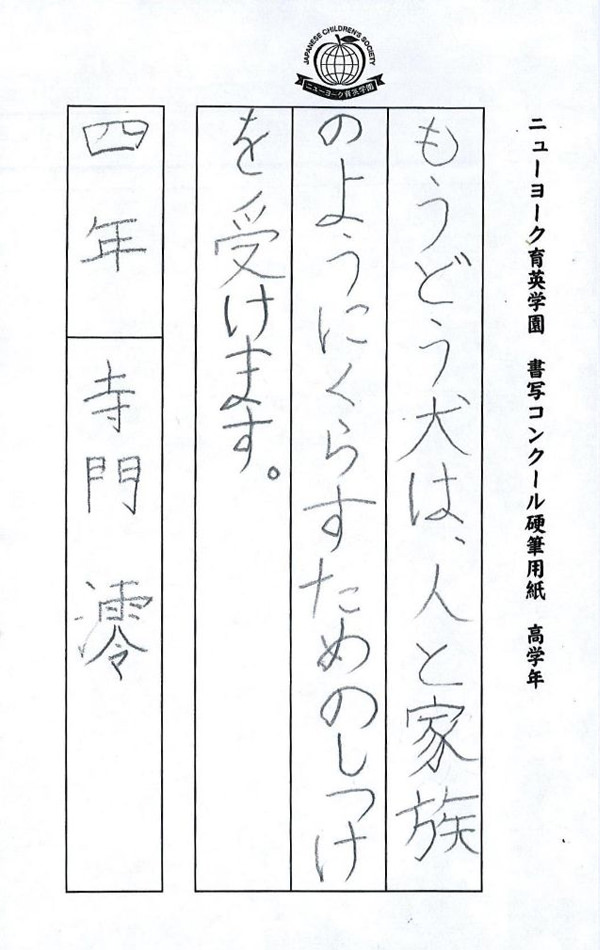 JAPANESE CHILDREN'S SOCIETY
ニューヨーク育英学園
ニューヨーク育英学園 書写コンクール硬筆用紙 高学年
もうどう犬は、人と家族
のようにくらすためのしつけ
を受けます。
四年 寺門 澪